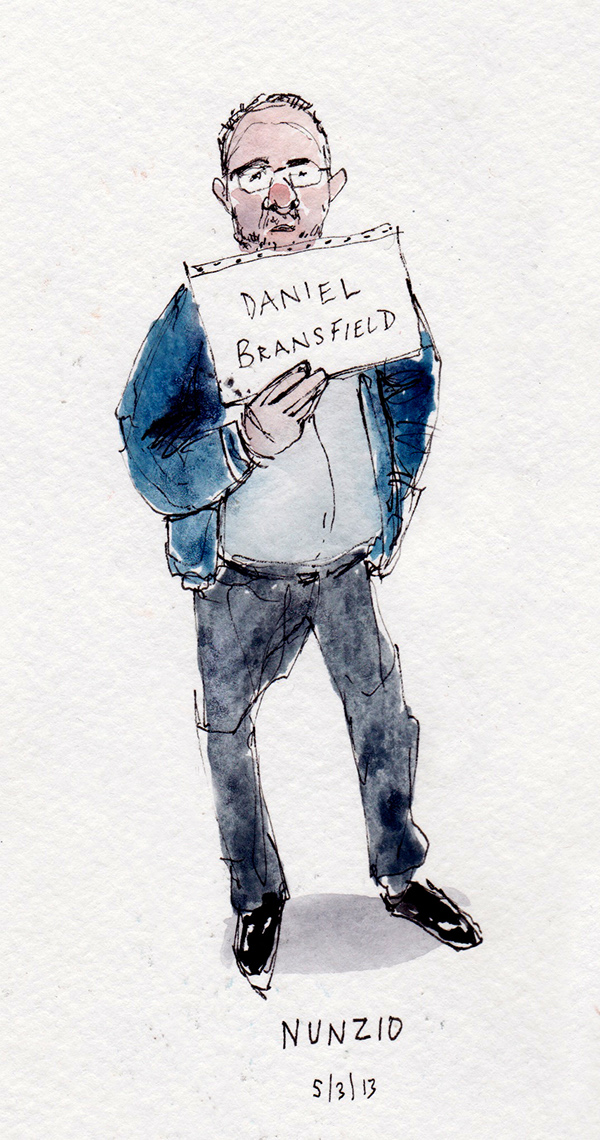 DANIEL
BRANSFIELD
NUNZIO
5/3/13